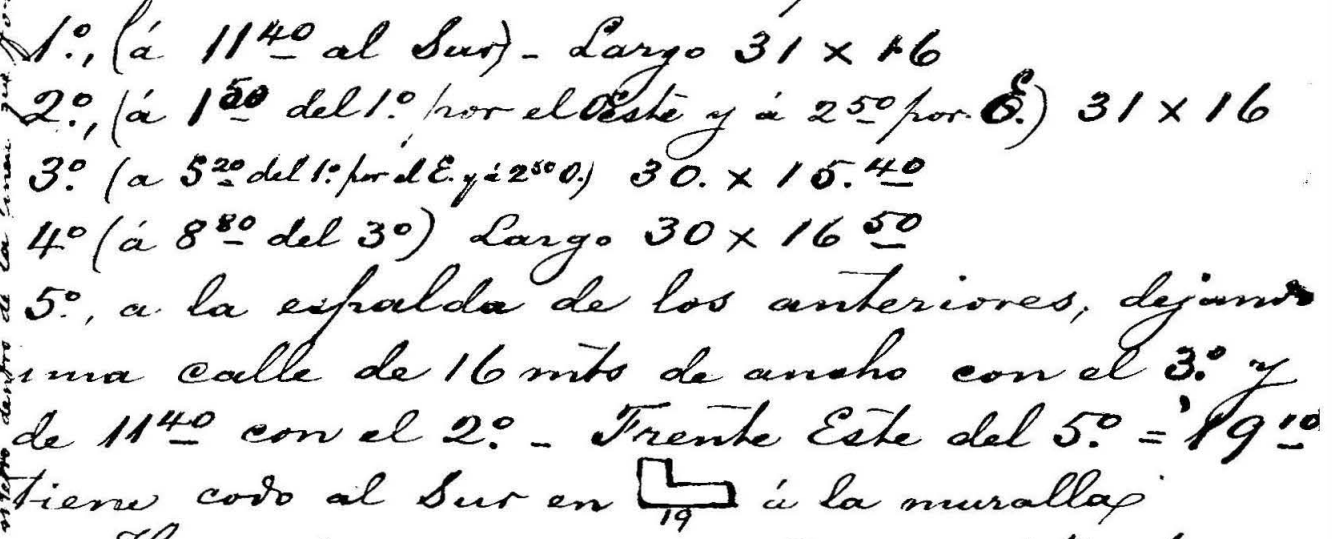 1º, (á 11⁴⁰ al Sur) - Largo 31 x 16
2º, (á 1⁵⁰ del 1º por el Oeste y á 2⁵⁰ por E.) 31 x 16
3º (a 5²⁰ del 1º por el E. y á 2⁵⁰ O.) 30. x 15.⁴⁰
4º (á 8⁸⁰ del 3º) Largo 30 x 16 ⁵⁰
5º, a la espalda de los anteriores, dejando
una calle de 16 mts de ancho con el 3º y
de 11⁴⁰ con el 2º - Frente Este del 5º = 19¹⁰
tiene codo al Sur en á la muralla
19
dentro de la